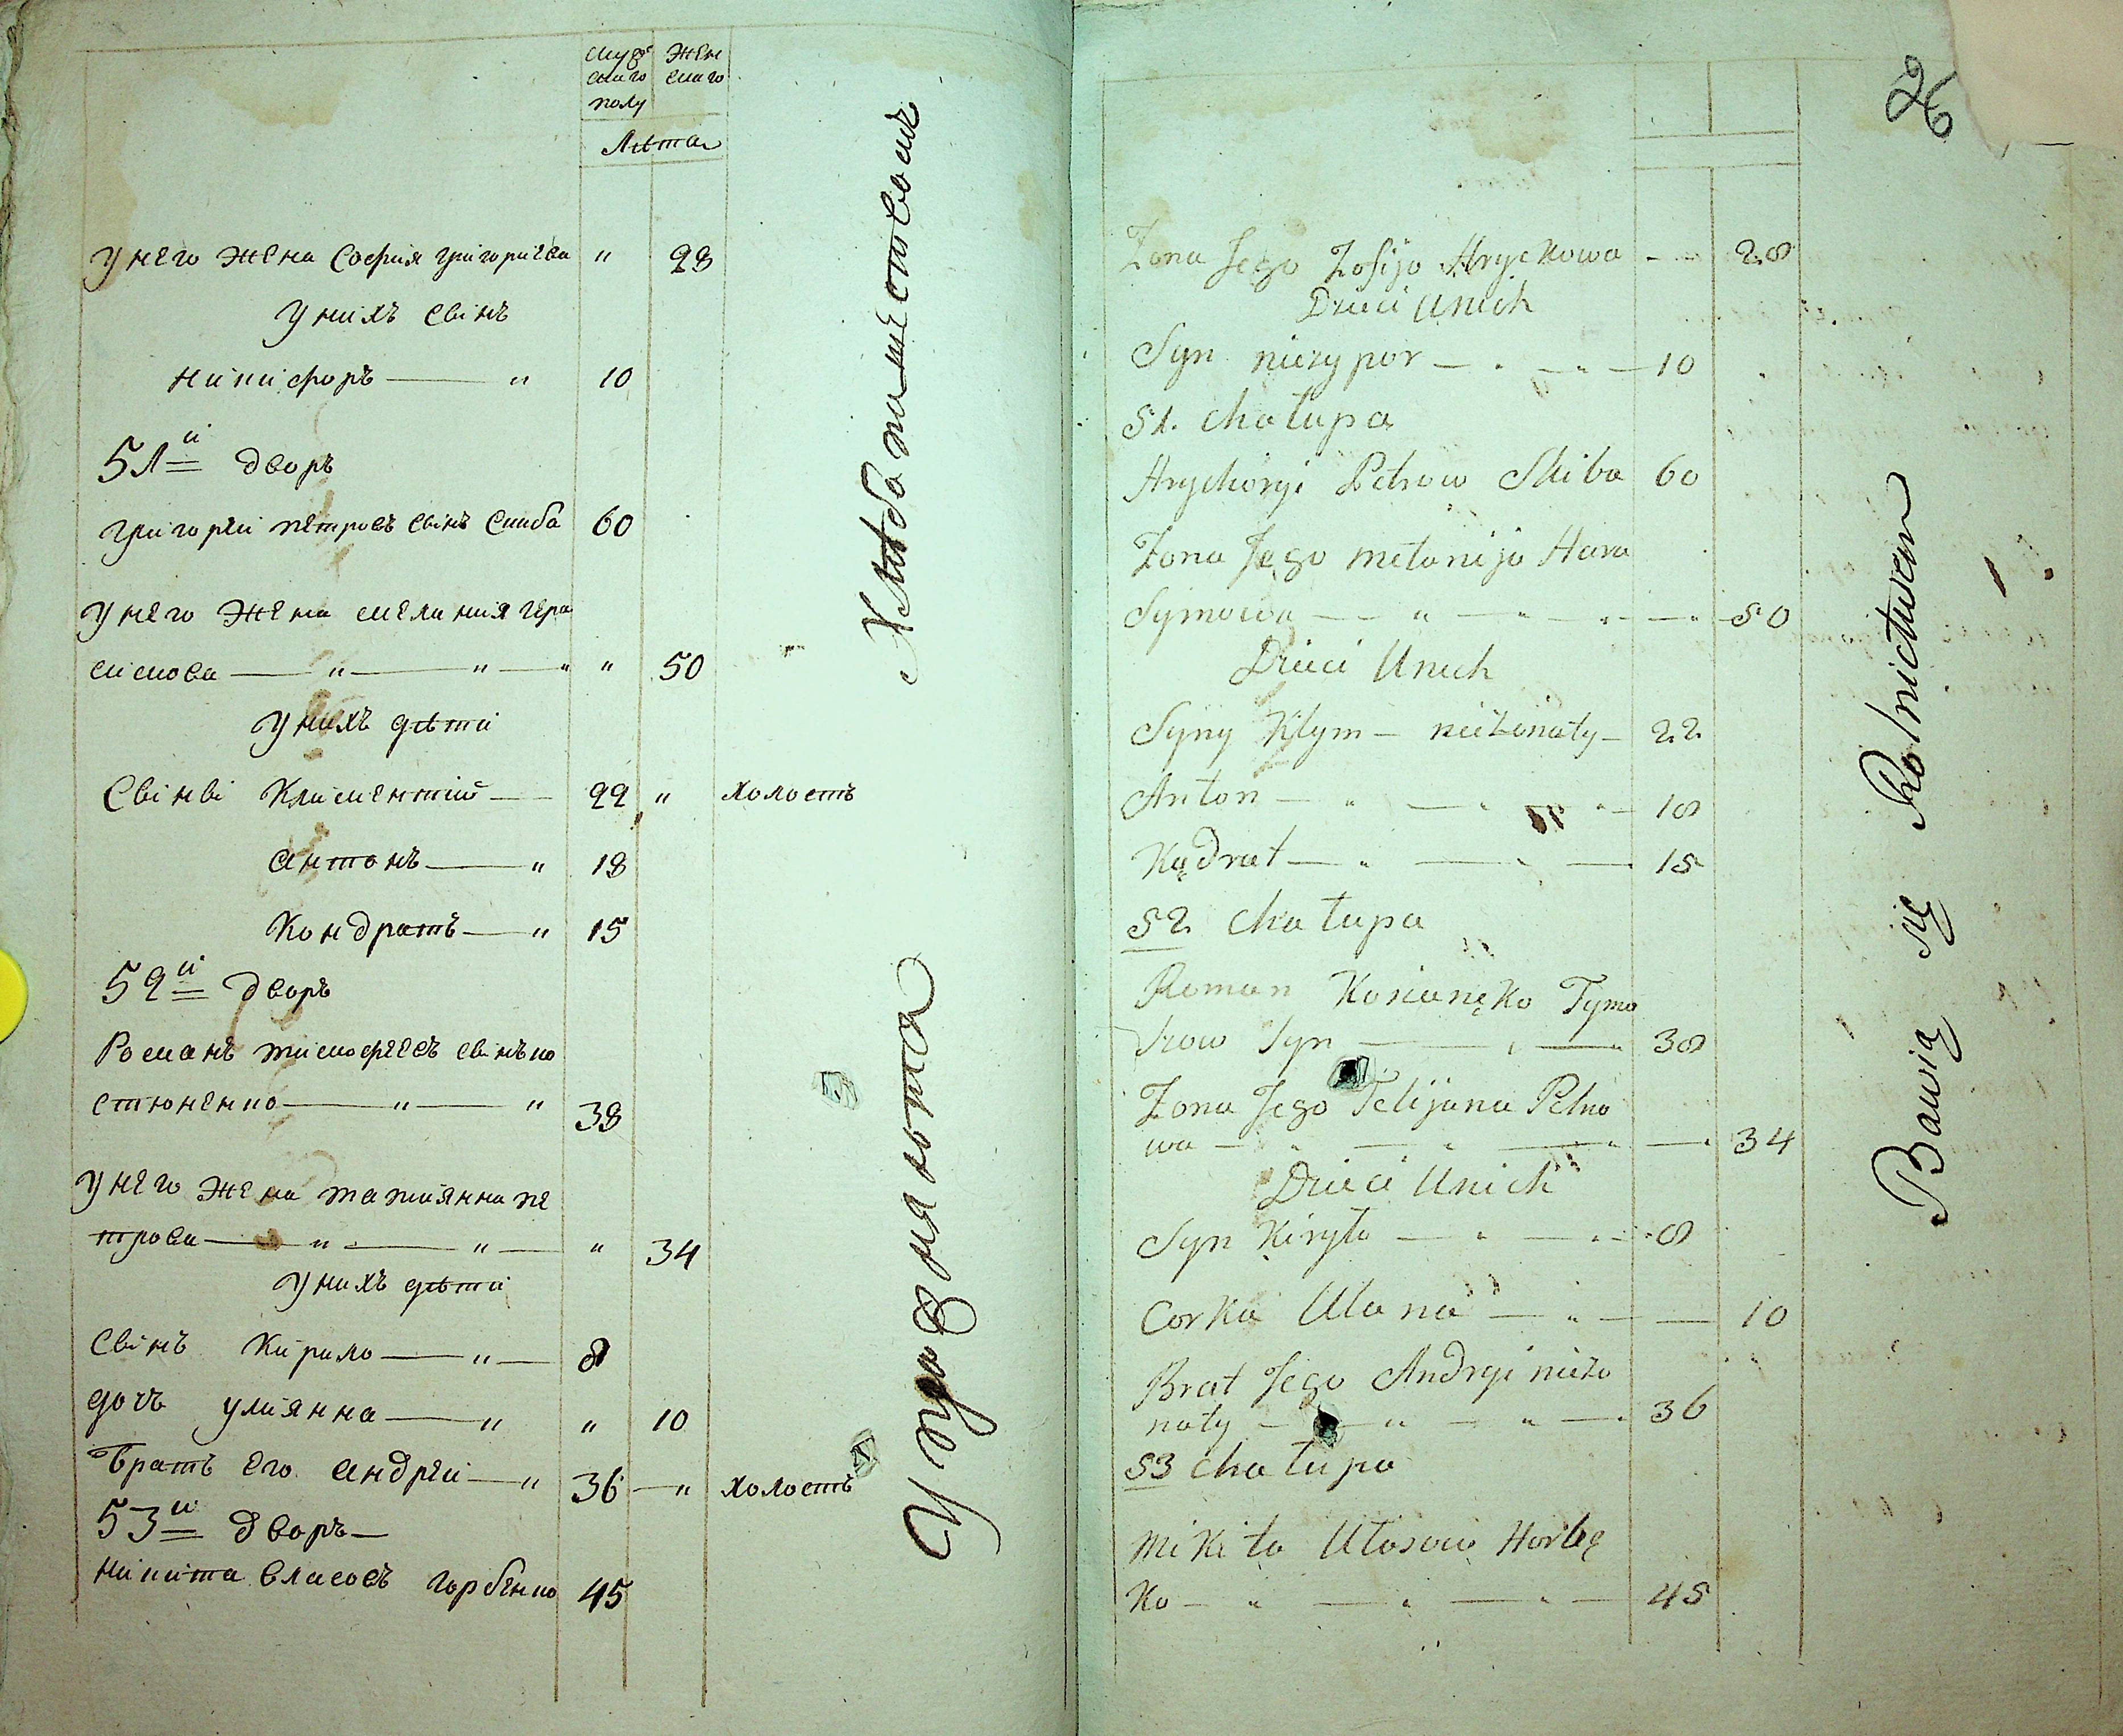 мужскаго женскаго
полу
Лѣта
У него жена София григориева " 28
У нихъ синъ
никифоръ — " 10
51й дворъ
григорей петровъ синъ Скиба 60
У него жена мелания гера
симова — " — " — " " 50
У нихъ дѣти
Сыны Климентий — 22 " холостъ
антонъ — " 18
Кондратъ — " 15
52й дворъ
Романъ тимофеевъ синъ ко
стюченко — " — " 38
У него жена татиянна пе
трова — " — " — " 34
У нихъ дѣти
Синъ Кирило — " — 8
дочь улиянна — " " 10
Братъ его андрей — " 36 — " холостъ
53й дворъ —
никита власовъ горбенко 45
Упражнялота Хлебопашествомъ
26
Zona Jego Zofija Hryckowa - - 28
Dzieci Unich
Syn niczypor — " — " — 10
51. Chałupa
Hrychoryi Petrow Skiba 60
Zona Jego Mełanija Hara
Symowa — — " — " — " — " 50
Dzieci Unich
Syny Kłym — nieżonaty — 22
Anton — " — " — " — 18
Kądrat — " — " — 15
52 Chałupa
Roman Kosianęko Tymo
szow Syn — " — 38
Zona Jego Tetijana Petro
wa — " — " — " — " 34
Dzieci Unich
Syn Kiryło — " — " - 8
Corka Ulana — " — — 10
Brat Jego Andryi nieżo
naty — " — " — 36
53 Chałupa
Mikita Ułasow Horbę
Ko — " — " — " — 45
Bawią się Rolnictwem